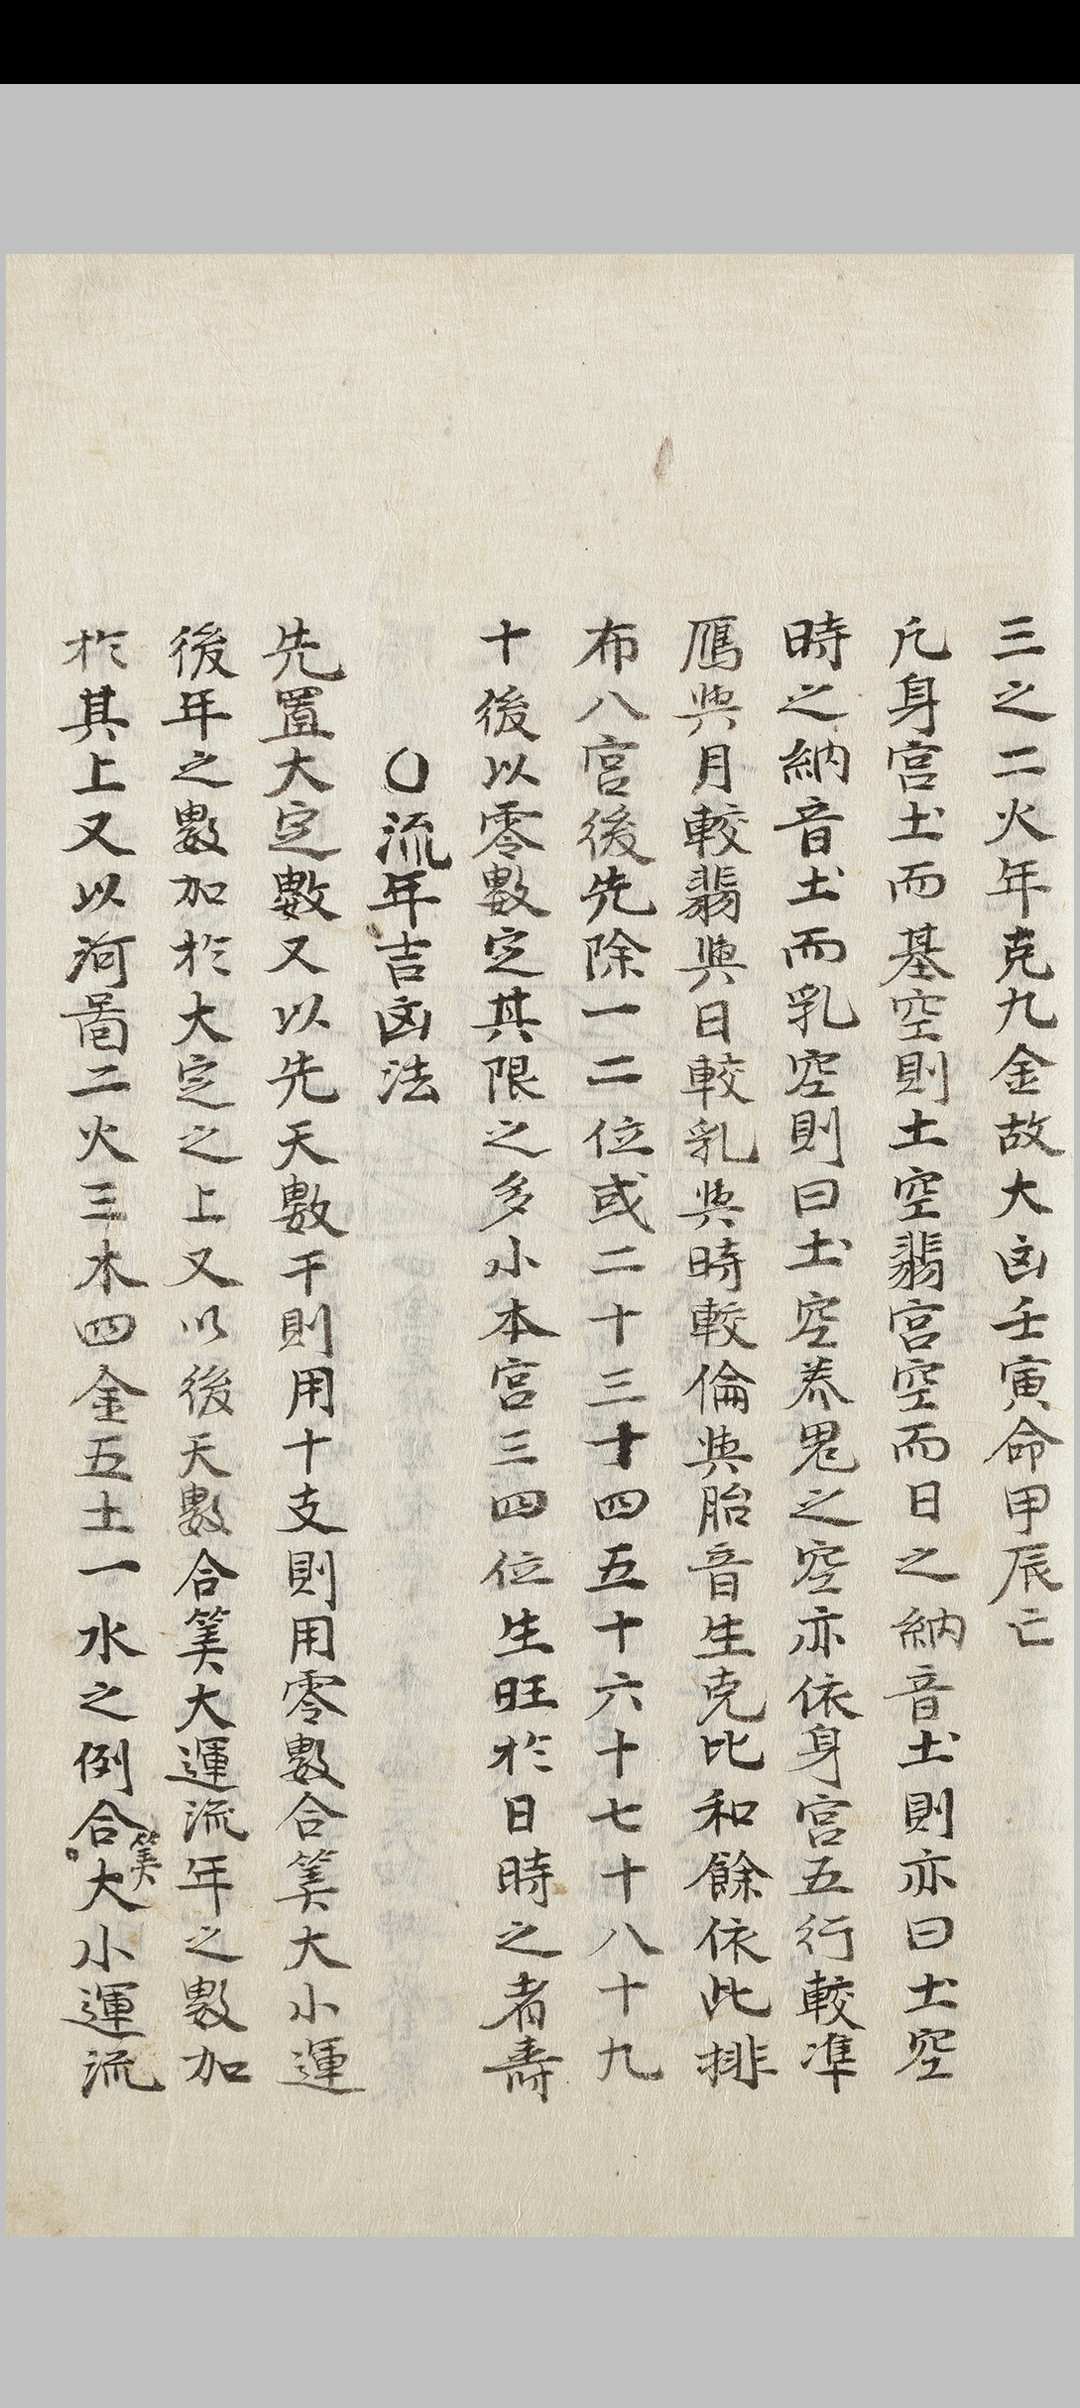 三之二火年克九金故大凶壬寅命甲辰亡
凡身宮土而基空則土空翡宮空而日之納音土則亦曰土空
時之納音土而乳空則曰土空养鬼之空亦依身宮五行較準
鴈與月較翡與日較乳與時較倫與胎音生克比和餘依此排
布八宮後先除一二位或二十三十四五十六十七十八十九
十後以零數定其限之多小本宮三四位生旺於日時之者壽
〇流年吉凶法
先置大定數又以先天數干則用十支則用零數合筭大小運
後年之數加於大定之上又以後天數合筭大運流年之數加
於其上又以河圖二火三木四金五土一水之例合筭大小運流